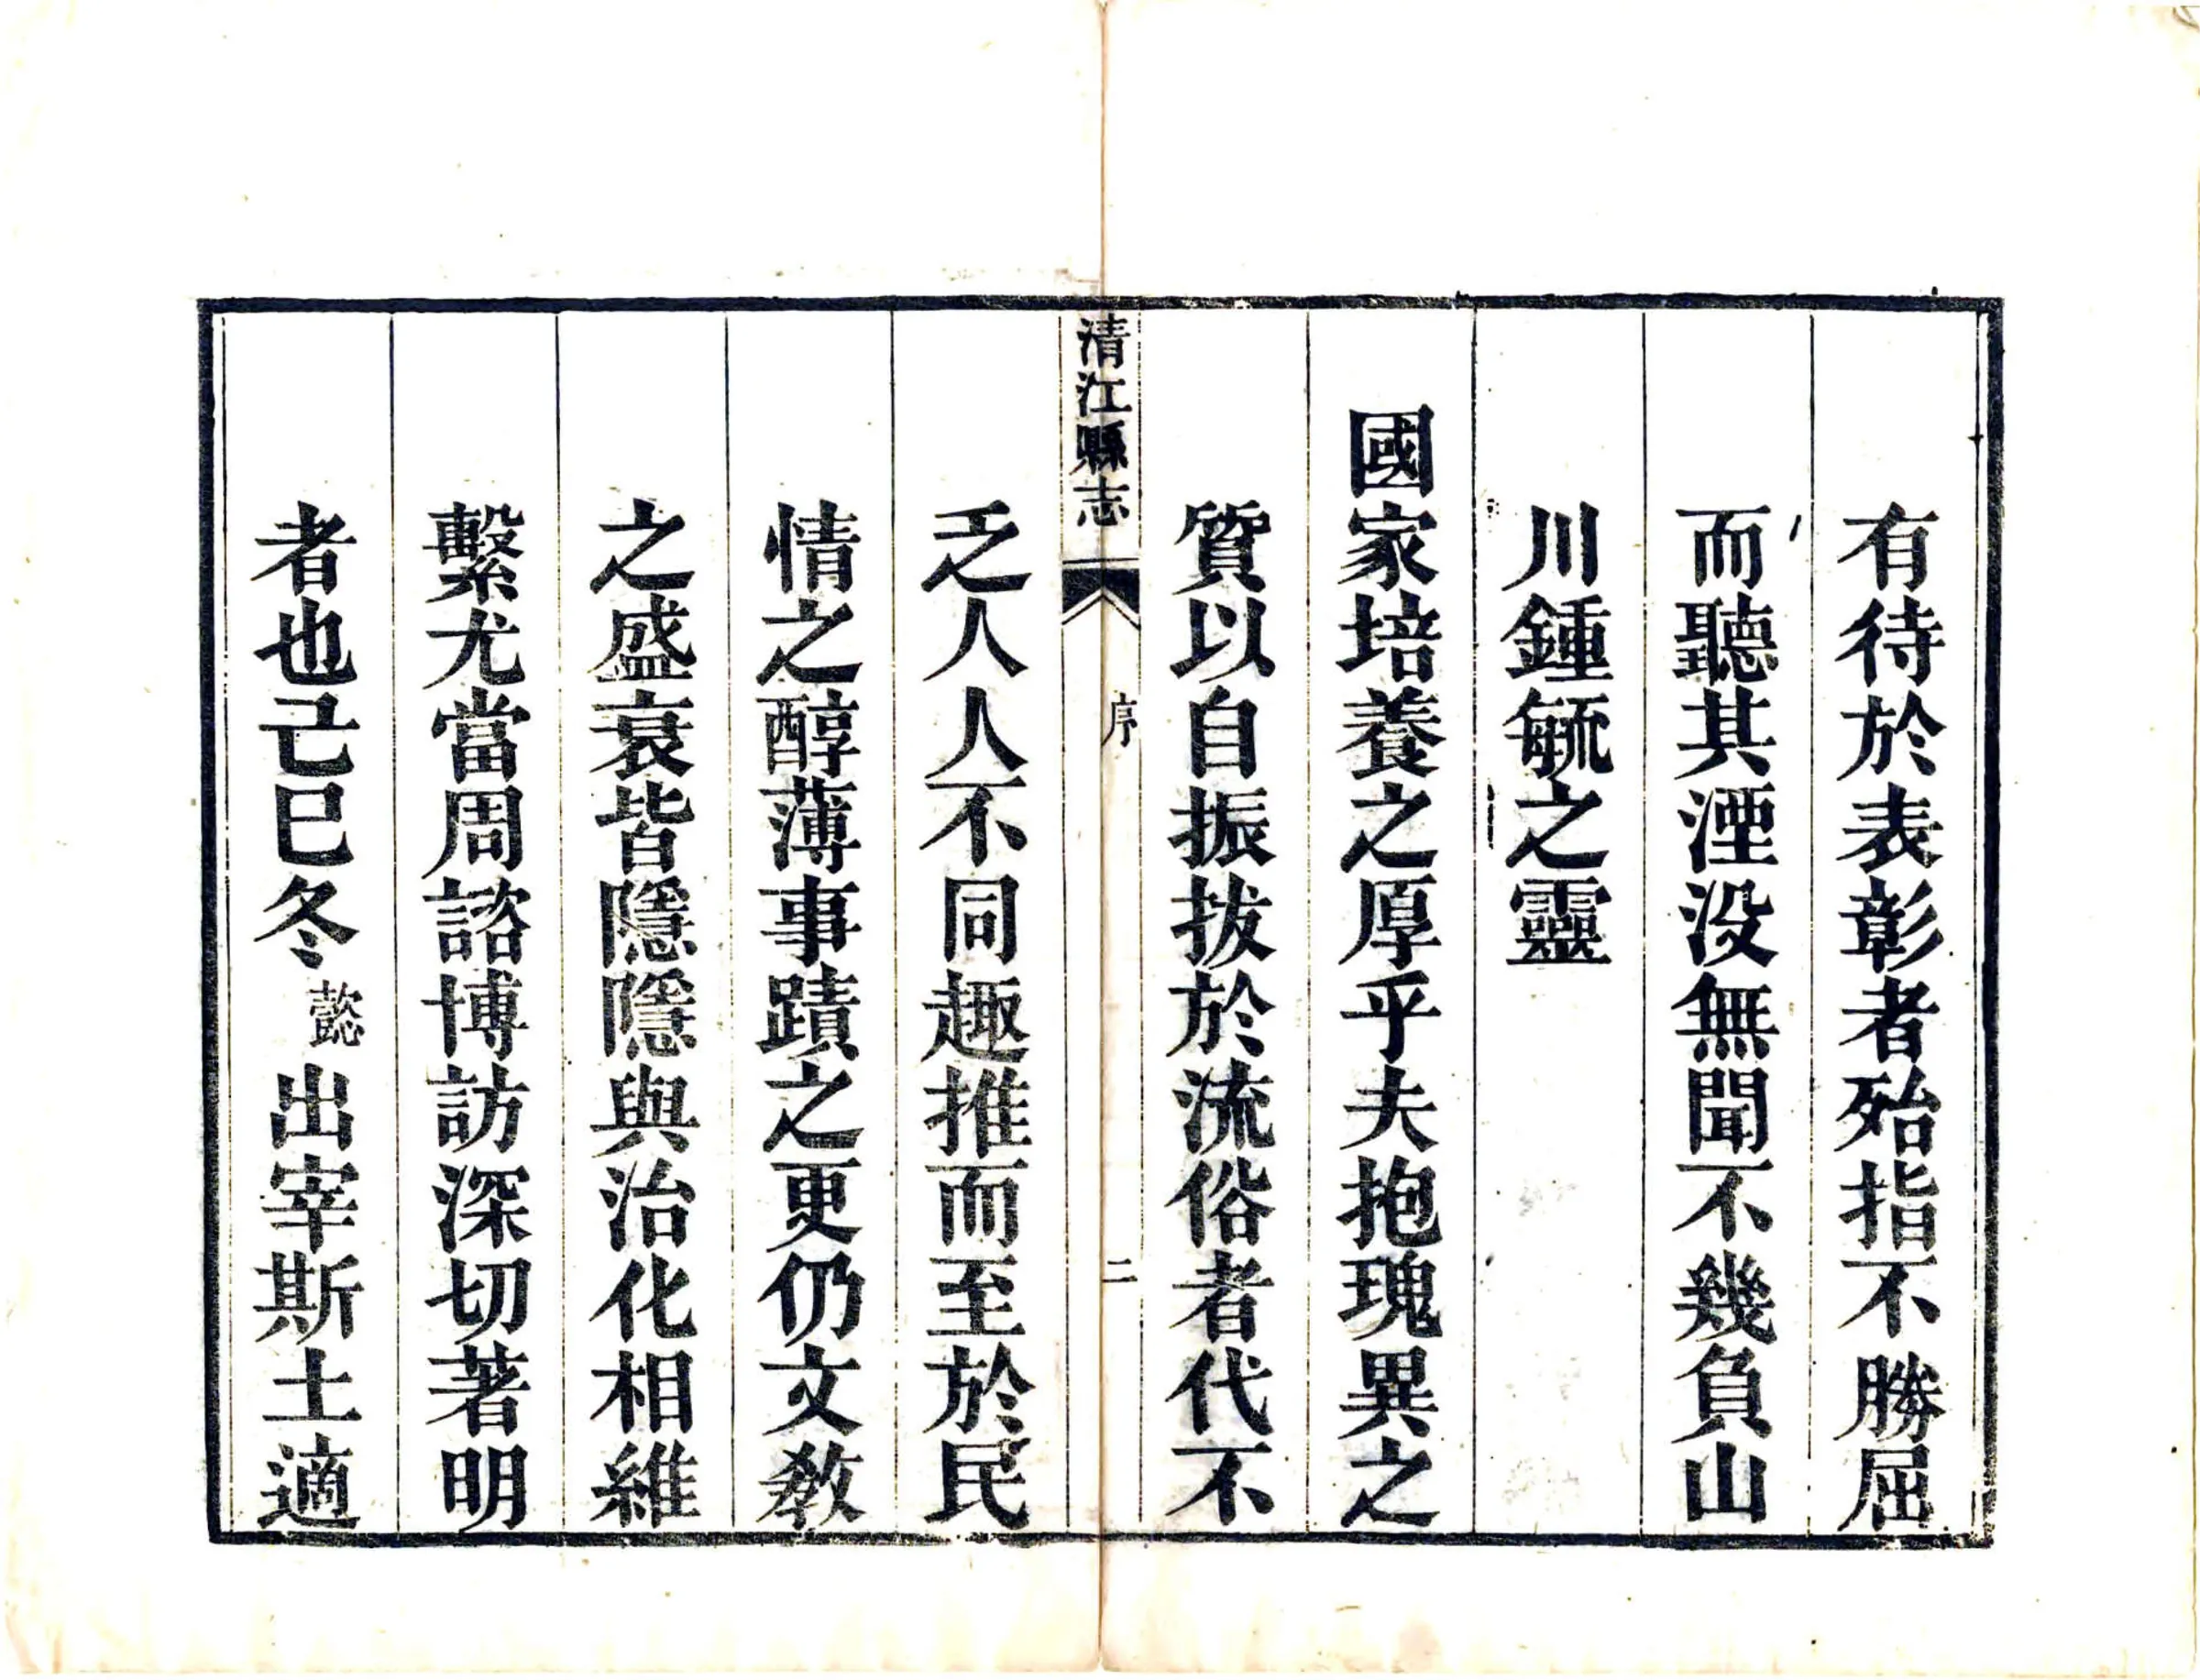 有待於表彰者殆指不勝屈
而聽其湮没無聞不幾負山
川鍾毓之靈
國家培養之厚乎夫抱瑰異之
質以自振拔於流俗者代不
清江縣志
序
二
乏人人不同趣推而至於民
情之醇薄事蹟之更仍文教
之盛衰皆隱隱與治化相維
繫尤當周諮博訪深切著明
者也己巳冬懿出宰斯土適